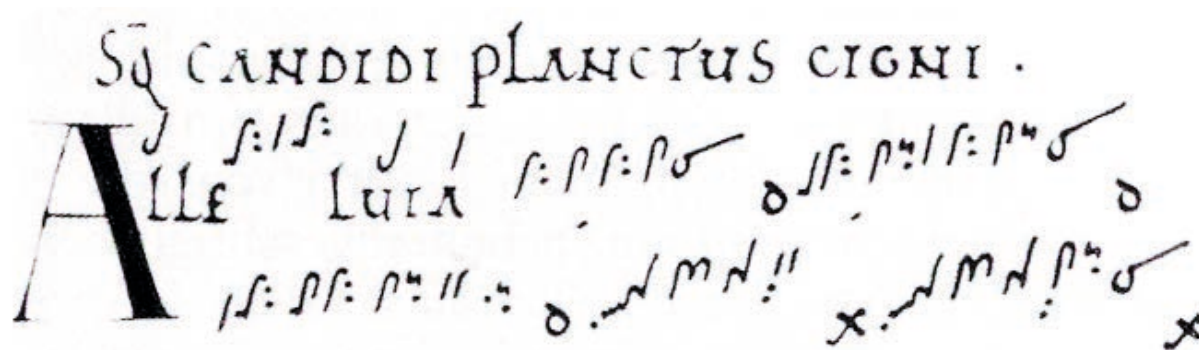 Sq̄ CANDIDI PLANCTUS CIGNI .
ALLE LUIA d d
d x x